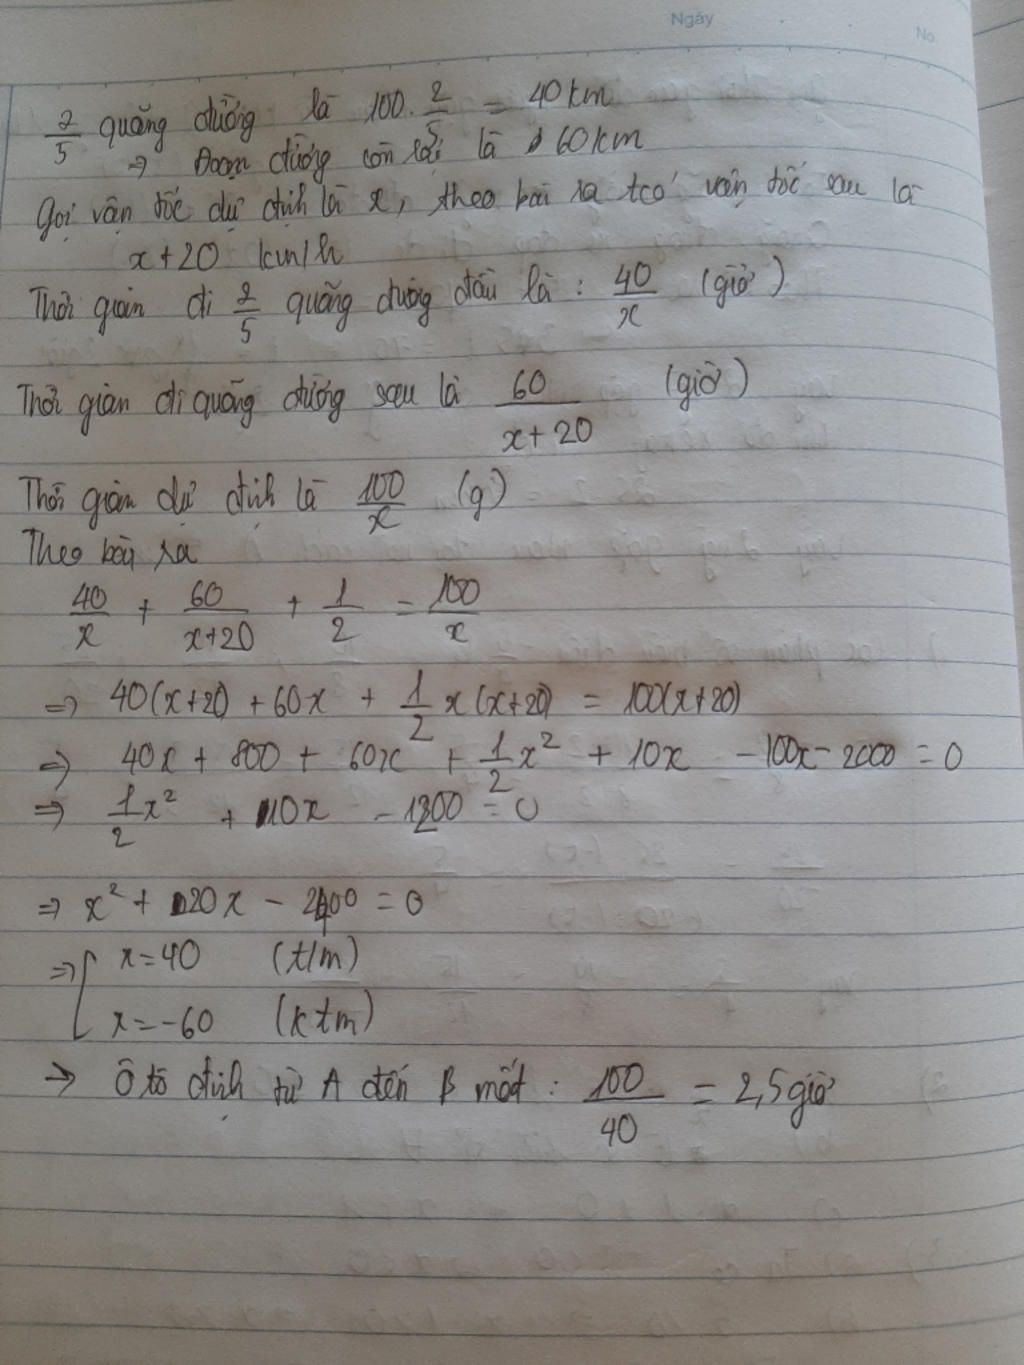 Ngày
No.
2/5 quãng đường là 100. 2/5 = 40 km
⇒ Đoạn đường còn lại là 60km
Gọi vận tốc dự định là x, theo bài ra tcó vận tốc sau là
x+20 km/h
Thời gian đi 2/5 quãng đường đầu là : 40/x (giờ)
Thời gian đi quãng đường sau là 60/(x+20) (giờ)
Thời gian dự định là 100/x (g)
Theo bài ra
40/x + 60/(x+20) + 1/2 = 100/x
⇒ 40(x+20) + 60x + 1/2 x(x+20) = 100(x+20)
⇒ 40x + 800 + 60x + 1/2 x² + 10x - 100x - 2000 = 0
⇒ 1/2 x² + 10x - 1200 = 0
⇒ x² + 20x - 2400 = 0
⇒ [ x = 40 (t/m)
x = -60 (ktm)
⇒ Ô tô định từ A đến B mất : 100/40 = 2,5 giờ